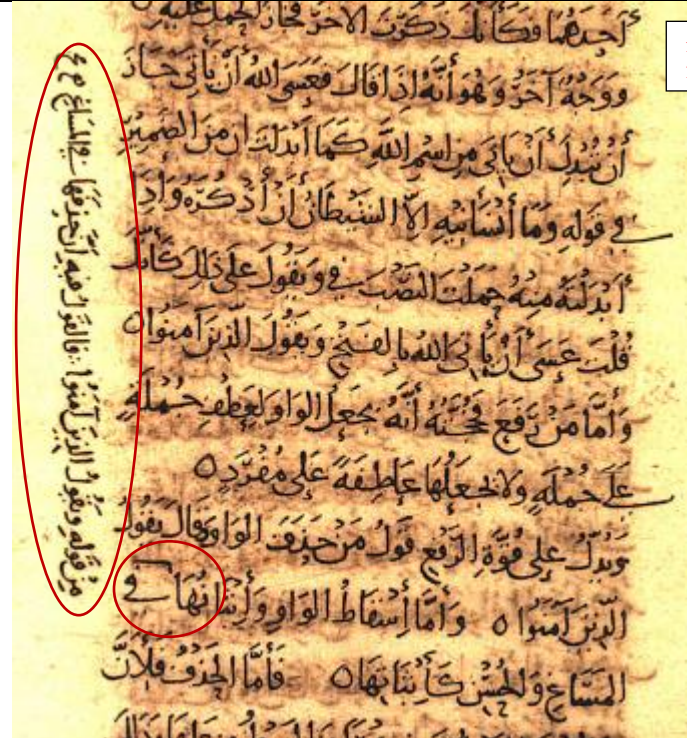 أحدهما فكأنك ذكرت الآخر فجاز الحمل عليه ه
ووجه آخر وهو أنه إذا قال فعسى الله أن يأتي جاز
أن تبدل أن يأتي من اسم الله كما أبدلت أن من الضمير
في قوله وما أنسانيه إلا الشيطان أن أذكره وإذا
أبدلته منه حملت النصب في ويقول على ذلك كأنك
قلت عسى أن يأتي الله بالفتح ويقول الذين آمنوا ه
وأما من رفع فحجته أنه يجعل الواو لعطف جملة
على جملة ولا يجعلها عاطفة على مفرد ه
ويدل على قوة الرفع قول من حذف الواو وقال يقول
الذين آمنوا ه وأما إسقاط الواو وإثباتها في
المساغ والحسن كإثباتها ه فأما الحذف فلأن
من قوله ويقول الذين آمنوا فالقول فيه أن حذفها في المساغ